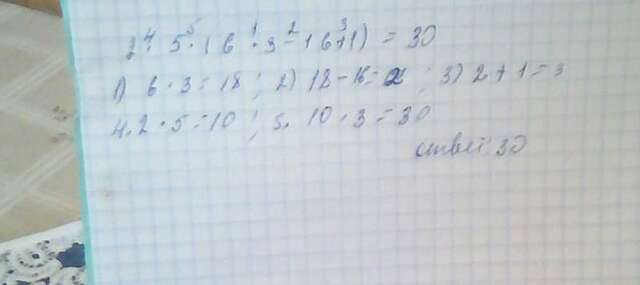 2 · 5 · (6 · 3 - 16 + 1) = 30
1) 6 · 3 = 18 ; 2) 18 - 16 = 2 ; 3) 2 + 1 = 3
4. 2 · 5 = 10 ; 5. 10 · 3 = 30
ответ: 30